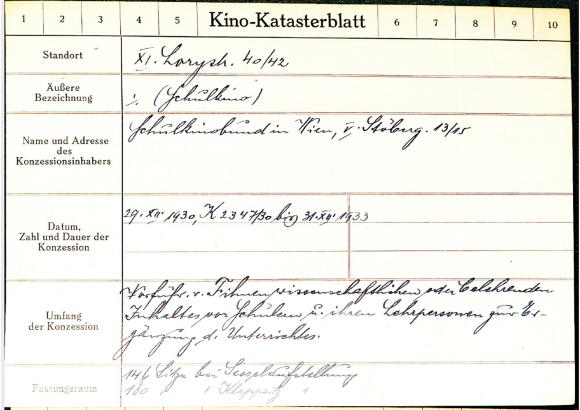 1 2 3 4 5 Kino-Katasterblatt 6 7 8 9 10
Standort
XI. Lorystr. 40/42
Äußere
Bezeichnung
./. (Schulkino)
Name und Adresse
des
Konzessionsinhabers
Schulkinobund in Wien, V. Stöberg. 13/15
Datum,
Zahl und Dauer der
Konzession
29. XII. 1930, K 2347/30 bis 31. XII. 1933
Umfang
der Konzession
Vorführ. v. Filmen wissenschaftlichen oder belehrenden
Inhaltes vor Schülern u. ihren Lehrpersonen zur Er-
gänzung d. Unterrichtes.
Fassungsraum
Sitze bei Sesselaufstellung
180 " " Klappsitz "